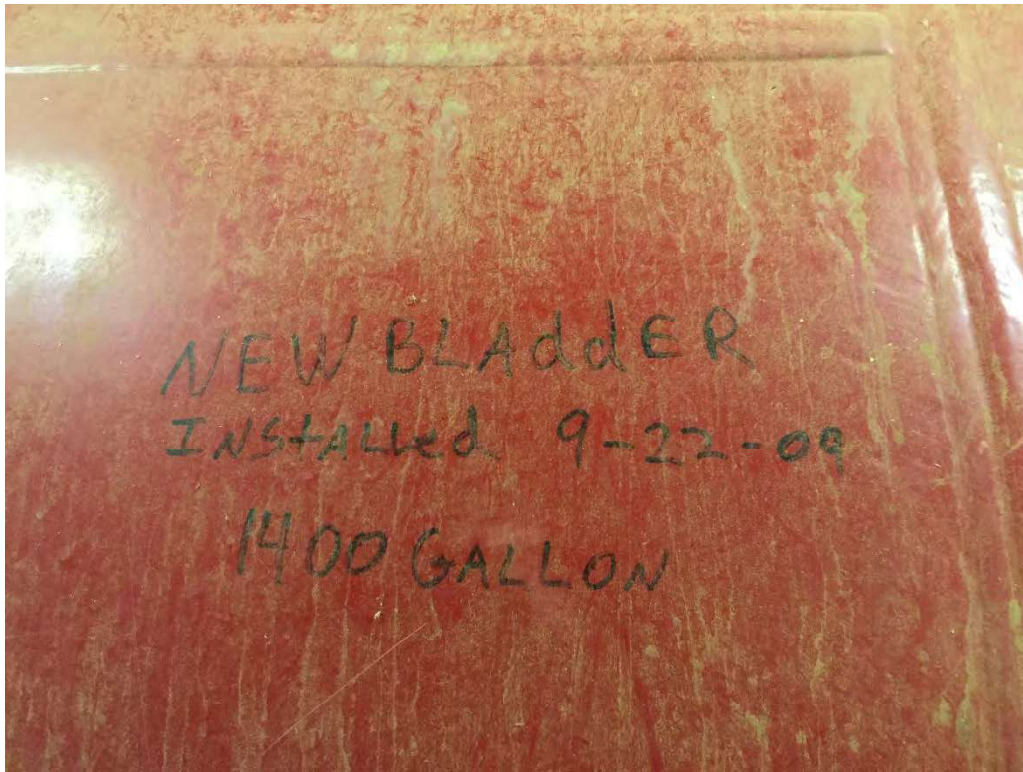 NEW BLAddER
INStALLed 9-22-09
1400 GALLON